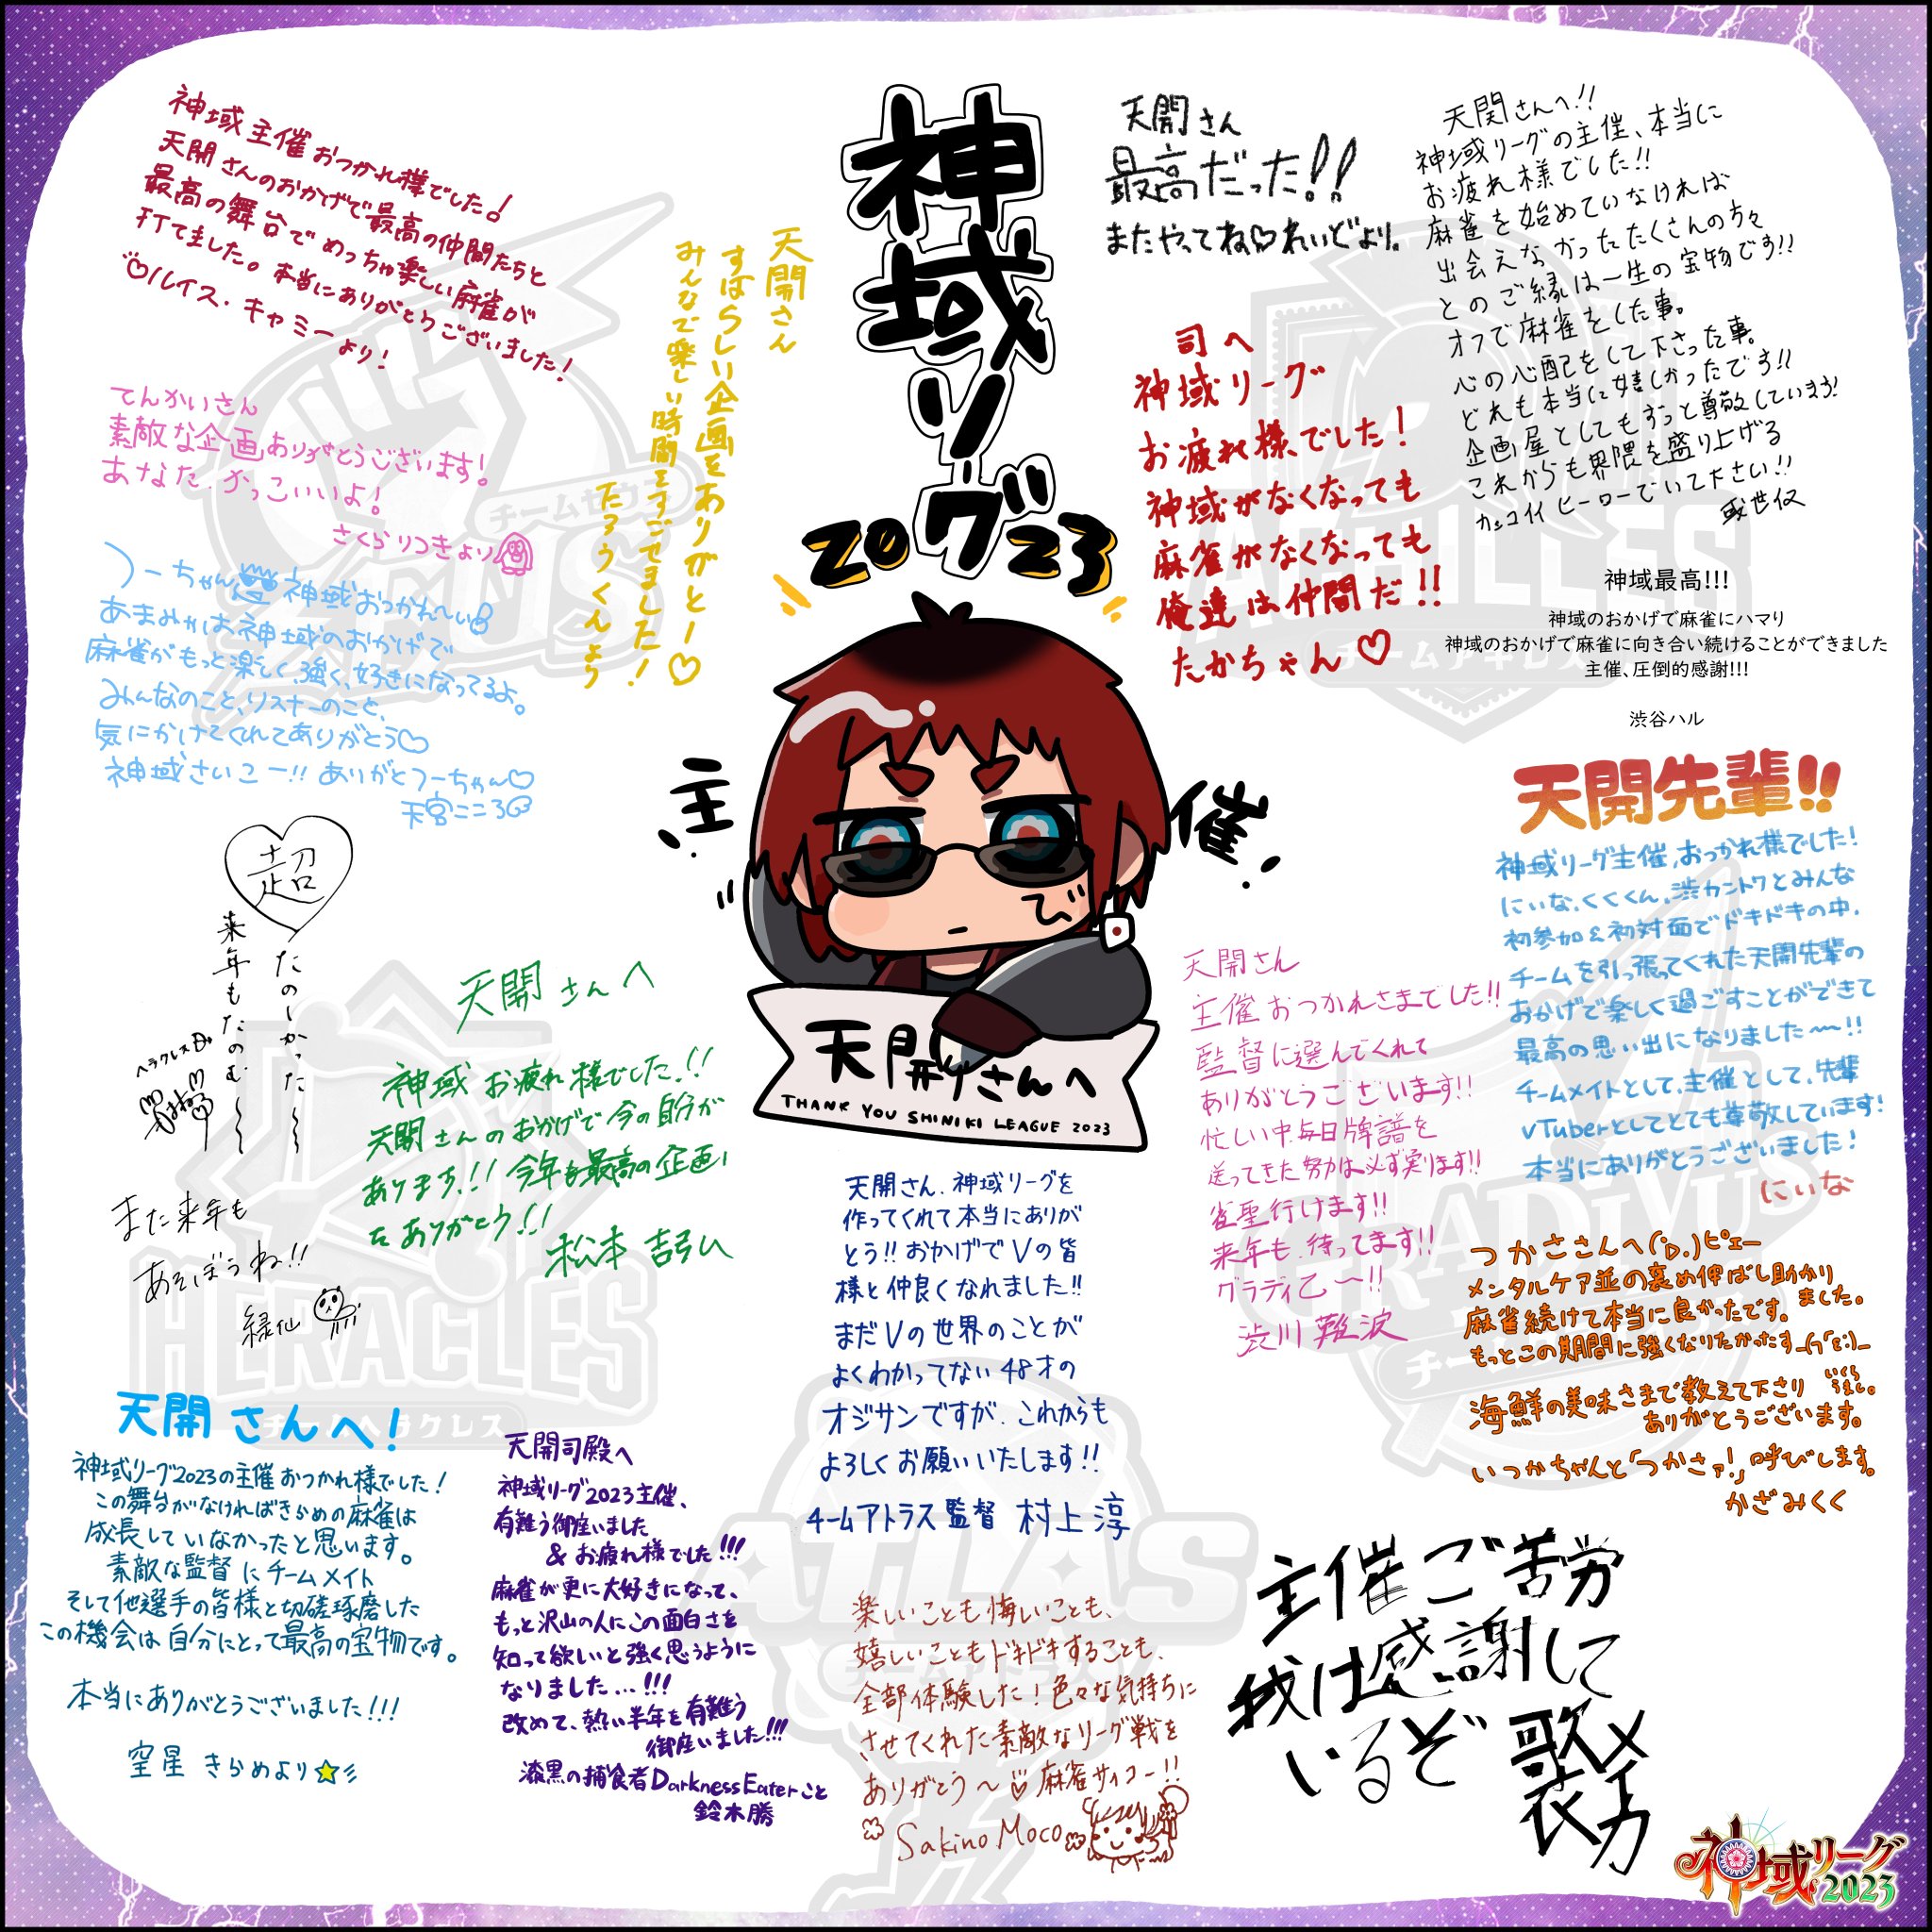 神域リーグ
2023
主催
天開さんへ
THANK YOU SHINIKI LEAGUE 2023
神域主催おつかれ様でした!
天開さんのおかげで最高の仲間たちと
最高の舞台でめっちゃ楽しい麻雀が
打てました。本当にありがとうございました!
♡ルイス・キャミーより!
てんかいさん
素敵な企画ありがとうございます!
あなた、かっこいいよ!
さくらりつきより
つーちゃん 神域おつかれ〜い
あまみゃは神域のおかげで
麻雀がもっと楽しく、強く、好きになってるよ。
みんなのこと、リスナーのこと、
気にかけてくれてありがとう♡
神域さいこー!! ありがとつーちゃん♡
天宮こころ
天開さん
すばらしい企画をありがとー♡
みんなで楽しい時間をすごせました!
たろうくんより
天開さん
最高だった!!
またやってね♡れいどより。
司へ
神域リーグ
お疲れ様でした!
神域がなくなっても
麻雀がなくなっても
俺達は仲間だ!!
たかちゃん♡
天開さんへ!!
神域リーグの主催、本当に
お疲れ様でした!!
麻雀を始めていなければ
出会えなかったたくさんの方々
とのご縁は一生の宝物です!!
オフで麻雀をした事。
心の心配をして下さった事。
どれも本当に嬉しかったです!!
企画屋としてもずっと尊敬しています!
これからも界隈を盛り上げる
カッコイイヒーローでいて下さい!!
或世イヌ
神域最高!!!
神域のおかげで麻雀にハマり
神域のおかげで麻雀に向き合い続けることができました
主催、圧倒的感謝!!!
渋谷ハル
天開先輩!!
神域リーグ主催、おつかれ様でした!
にいな、くくくん、渋カントクとみんな
初参加&初対面でドキドキの中、
チームを引っ張ってくれた天開先輩の
おかげで楽しく過ごすことができて
最高の思い出になりました〜!!
チームメイトとして、主催として、先輩
VTuberとしてとても尊敬しています!
本当にありがとうございました!
にいな
超
たのしかった〜
来年もたのむ〜
ヘラクレス
また来年も
あそぼうね!!
緑仙
天開さんへ
神域お疲れ様でした!!
天開さんのおかげで今の自分が
あります!!今年も最高の企画
をありがとう!!
松本吉弘
天開さん
主催おつかれさまでした!!
監督に選んでくれて
ありがとうございます!!
忙しい中毎日牌譜を
送ってきた努力は必ず実ります!!
雀聖行けます!!
来年も待ってます!!
グラディ乙〜!!
渋川難波
つかささんへ('D,)ピェー
メンタルケア並の褒め伸ばし助かり
ました。
麻雀続けて本当に良かったです。
もっとこの期間に強くなりたかったす
海鮮の美味さまで教えて下さり
いくらうまし。
ありがとうございます。
いつかちゃんと「つかさァ!」呼びします。
かざみくく
天開さん、神域リーグを
作ってくれて本当にありが
とう!!おかげでVの皆
様と仲良くなれました!!
まだVの世界のことが
よくわかってない48才の
オジサンですが、これからも
よろしくお願いいたします!!
チームアトラス監督 村上淳
天開さんへ!
神域リーグ2023の主催おつかれ様でした!
この舞台がなければきらめの麻雀は
成長していなかったと思います。
素敵な監督にチームメイト
そして他選手の皆様と切磋琢磨した
この機会は自分にとって最高の宝物です。
本当にありがとうございました!!!
空星きらめより
天開司殿へ
神域リーグ2023主催、
有難う御座いました
&お疲れ様でした!!!
麻雀が更に大好きになって、
もっと沢山の人にこの面白さを
知って欲しいと強く思うように
なりました...!!!
改めて、熱い半年を有難う
御座いました!!!
漆黒の捕食者DarknessEaterこと
鈴木勝
楽しいことも悔しいことも、
嬉しいこともドキドキすることも、
全部体験した!色々な気持ちに
させてくれた素敵なリーグ戦を
ありがとう〜♡麻雀サイコー!!
Sakino Moco
主催ご苦労
我は感謝して
いるぞ
歌衣メイカ
チームゼウス
ZEUS
ACHILLES
チームアキレス
HERACLES
チームヘラクレス
GRADIVUS
チーム
ATLAS
チームアトラス
神域リーグ
2023